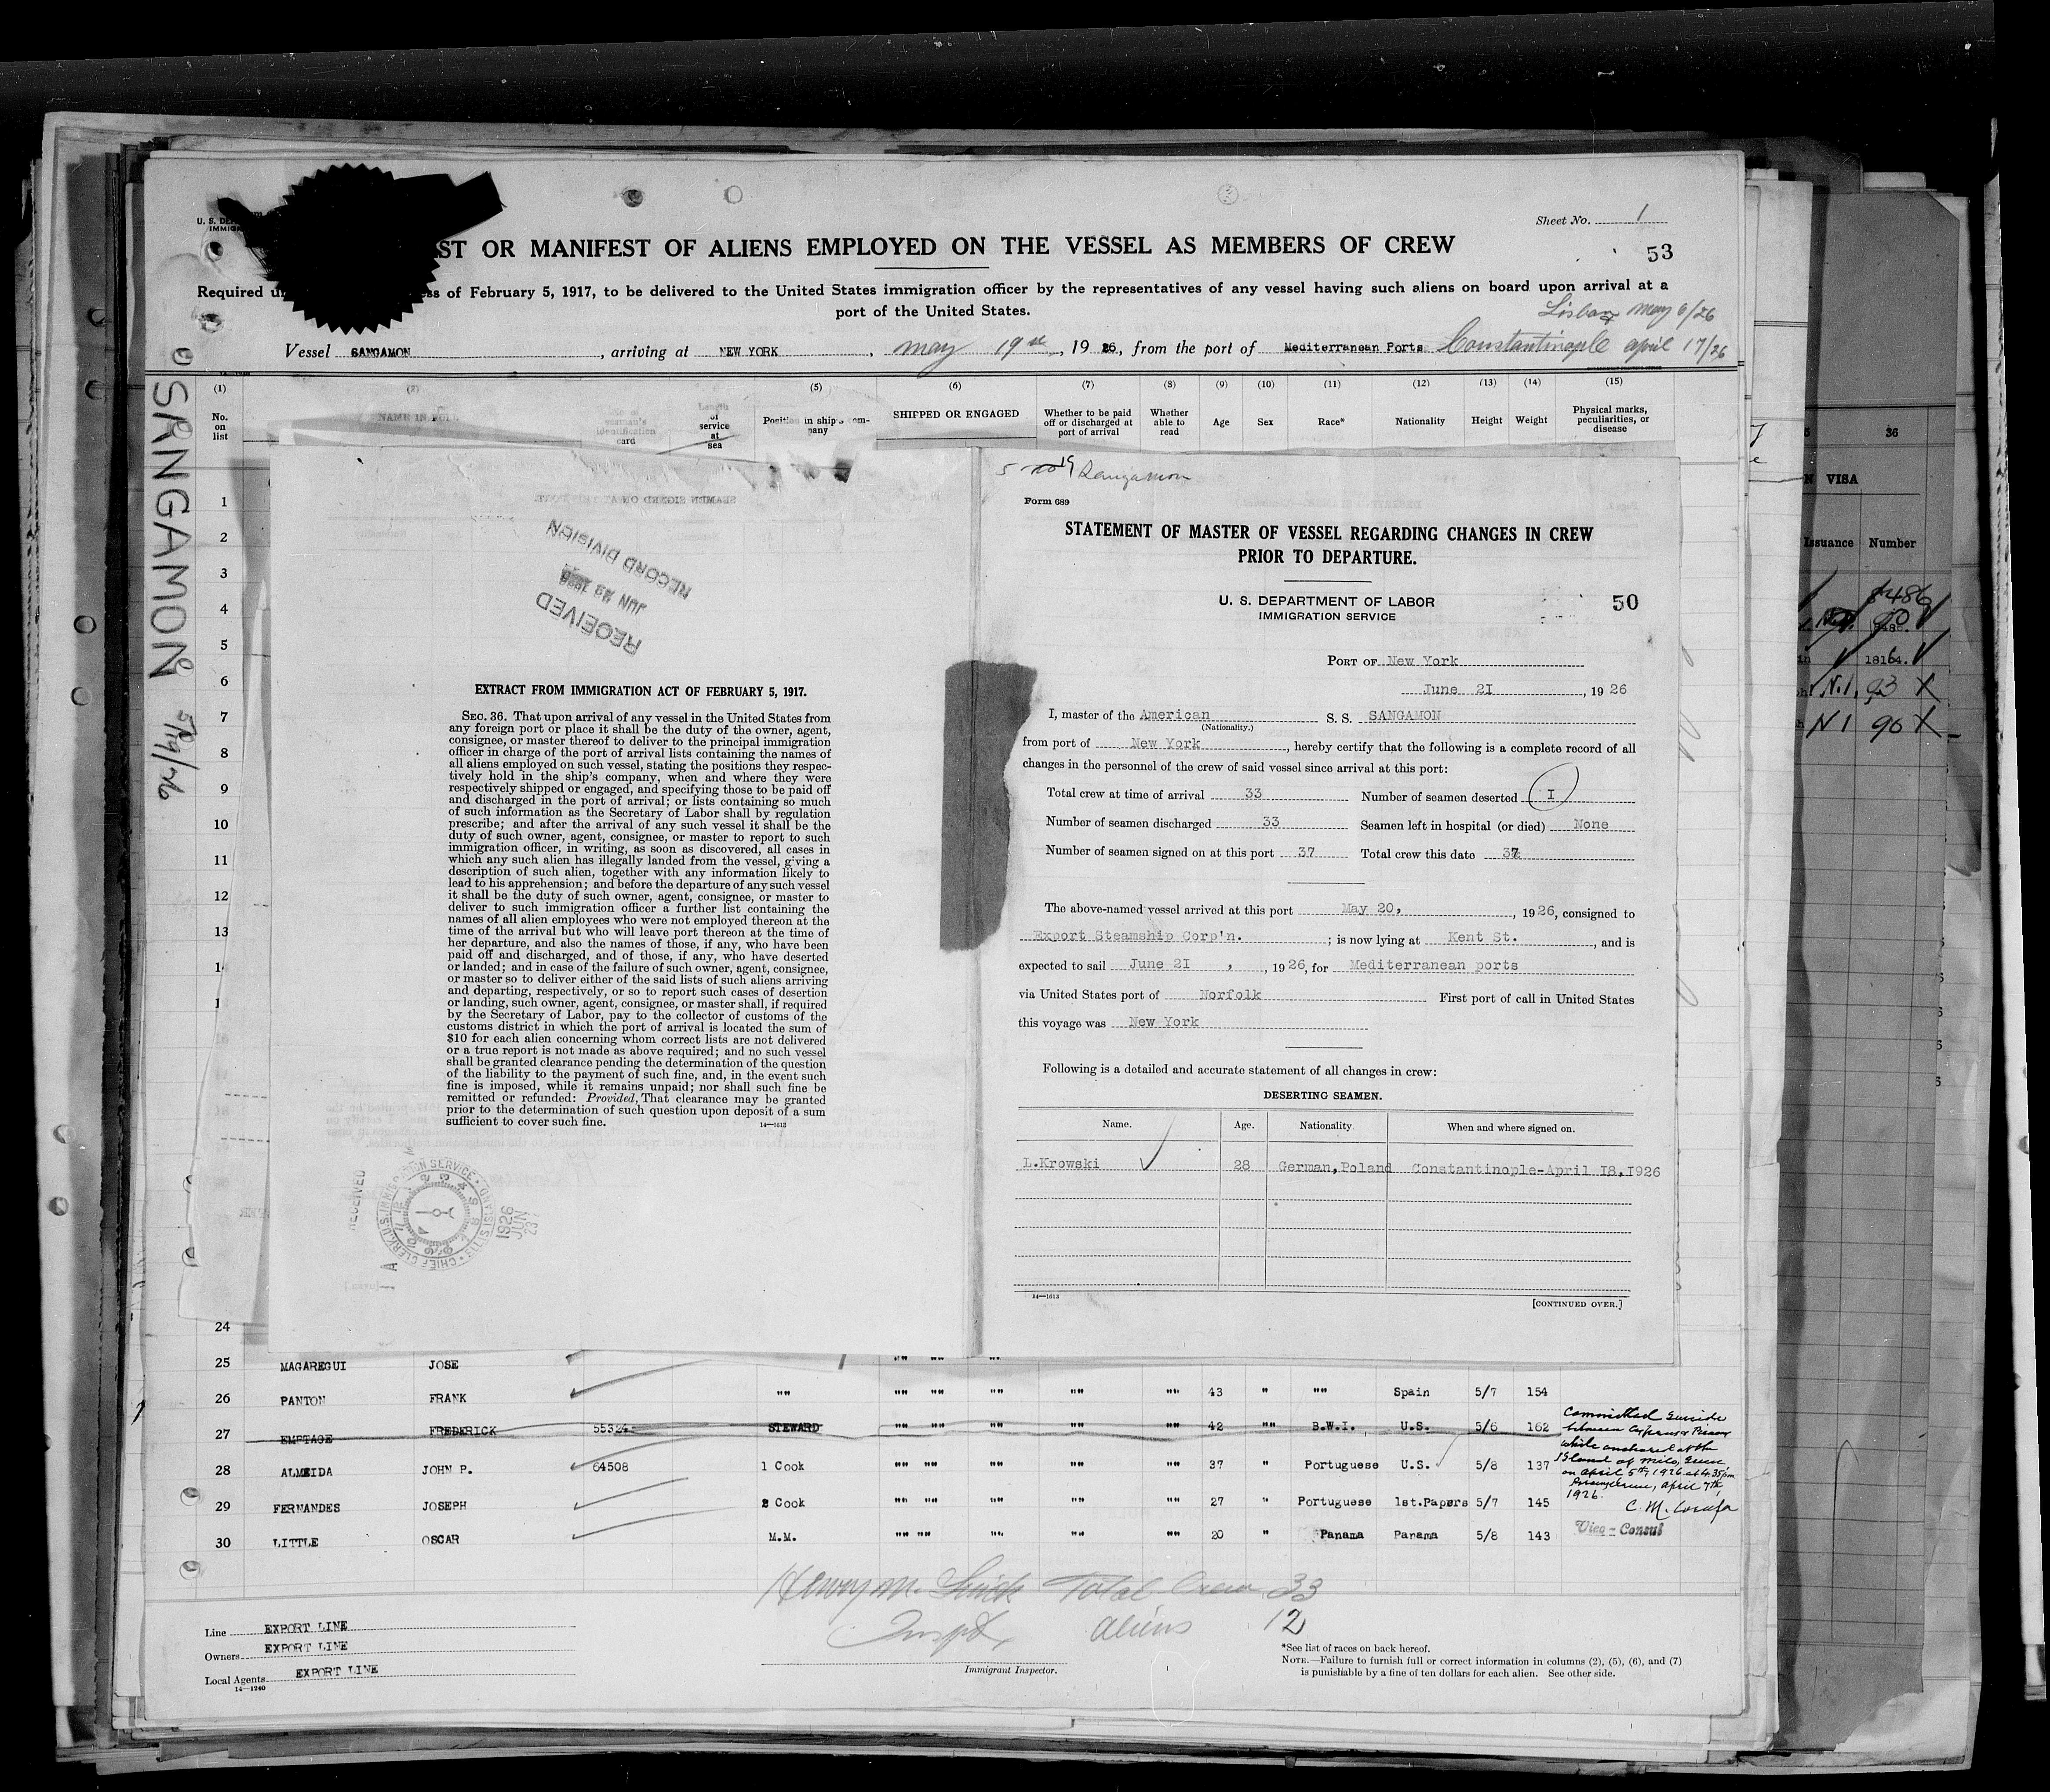 Sheet No. 1
53
ST OR MANIFEST OF ALIENS EMPLOYED ON THE VESSEL AS MEMBERS OF CREW
Required ss of February 5, 1917, to be delivered to the United States immigration officer by the representatives of any vessel having such aliens on board upon arrival at a
port of the United States.
Lisbon May 6/26
Vessel SANGAMON, arriving at NEW YORK, May 19, 1926, from the port of Mediterranean Ports Constantinople April 17/26
(1) (2) (5) (6) (7) (8) (9) (10) (11) (12) (13) (14) (15)
No. on list
NAME IN FULL
identification card
Length of service at sea
Position in ship's company
SHIPPED OR ENGAGED
Whether to be paid off or discharged at port of arrival
Whether able to read
Age
Sex
Race*
Nationality
Height
Weight
Physical marks, peculiarities, or disease
SANGAMON 5/19/26
1
2
3
4
5
6
7
8
9
10
11
12
13
RECORD DIVISION
JUN 23 1926
RECEIVED
EXTRACT FROM IMMIGRATION ACT OF FEBRUARY 5, 1917.
SEC. 36. That upon arrival of any vessel in the United States from
any foreign port or place it shall be the duty of the owner, agent,
consignee, or master thereof to deliver to the principal immigration
officer in charge of the port of arrival lists containing the names of
all aliens employed on such vessel, stating the positions they respec-
tively hold in the ship's company, when and where they were
respectively shipped or engaged, and specifying those to be paid off
and discharged in the port of arrival; or lists containing so much
of such information as the Secretary of Labor shall by regulation
prescribe; and after the arrival of any such vessel it shall be the
duty of such owner, agent, consignee, or master to report to such
immigration officer, in writing, as soon as discovered, all cases in
which any such alien has illegally landed from the vessel, giving a
description of such alien, together with any information likely to
lead to his apprehension; and before the departure of any such vessel
it shall be the duty of such owner, agent, consignee, or master to
deliver to such immigration officer a further list containing the
names of all alien employees who were not employed thereon at the
time of the arrival but who will leave port thereon at the time of
her departure, and also the names of those, if any, who have been
paid off and discharged, and of those, if any, who have deserted
or landed; and in case of the failure of such owner, agent, consignee,
or master so to deliver either of the said lists of such aliens arriving
and departing, respectively, or so to report such cases of desertion
or landing, such owner, agent, consignee, or master shall, if required
by the Secretary of Labor, pay to the collector of customs of the
customs district in which the port of arrival is located the sum of
$10 for each alien concerning whom correct lists are not delivered
or a true report is not made as above required; and no such vessel
shall be granted clearance pending the determination of the question
of the liability to the payment of such fine, and, in the event such
fine is imposed, while it remains unpaid; nor shall such fine be
remitted or refunded: Provided, That clearance may be granted
prior to the determination of such question upon deposit of a sum
sufficient to cover such fine.
14—1613
RECEIVED
CHIEF CLERK, U.S. IMMIGRATION SERVICE · ELLIS ISLAND
1926 JUN 23
Sangamon
Form 689
STATEMENT OF MASTER OF VESSEL REGARDING CHANGES IN CREW
PRIOR TO DEPARTURE.
U. S. DEPARTMENT OF LABOR
IMMIGRATION SERVICE
50
PORT OF New York
June 2I, 1926
I, master of the American S. S. SANGAMON
(Nationality.)
from port of New York, hereby certify that the following is a complete record of all
changes in the personnel of the crew of said vessel since arrival at this port:
Total crew at time of arrival 33 Number of seamen deserted I
Number of seamen discharged 33 Seamen left in hospital (or died) None
Number of seamen signed on at this port 37 Total crew this date 37
The above-named vessel arrived at this port May 20, 1926, consigned to
Export Steamship Corp'n. ; is now lying at Kent St. , and is
expected to sail June 2I , 1926, for Mediterranean ports
via United States port of Norfolk First port of call in United States
this voyage was New York
Following is a detailed and accurate statement of all changes in crew:
DESERTING SEAMEN.
Name. Age. Nationality When and where signed on.
L.Krowski 28 German,Poland Constantinople-April I8,I926
14—1613
[CONTINUED OVER.]
24
25 MAGAREGUI JOSE "" "" ""
26 PANTON FRANK "" "" "" "" "" "" 43 " "" Spain 5/7 154
27 EMPTAGE FREDERICK 55324 STEWARD "" "" "" "" "" 42 "" B.W.I. U.S. 5/6 162
28 ALMEIDA JOHN P. 64508 1 Cook "" "" "" "" "" 37 " Portuguese U.S. 5/8 137
29 FERNANDES JOSEPH 2 Cook "" "" "" "" "" 27 " Portuguese 1st.Papers 5/7 145
30 LITTLE OSCAR M.M. "" "" "" "" "" 20 " Panama Panama 5/8 143
Committed Suicide
between
while anchored at the
Island of Milo,
on April 5th, 1926 at 4.35 pm
April 7th,
1926.
C. M.
Vice-Consul
Henry M. Total Crew 33
Aliens 12
Immigrant Inspector.
Line EXPORT LINE
Owners EXPORT LINE
Local Agents EXPORT LINE
14—1240
*See list of races on back hereof.
NOTE.—Failure to furnish full or correct information in columns (2), (5), (6), and (7)
is punishable by a fine of ten dollars for each alien. See other side.
36
VISA
Issuance Number
8486
18164.
N.1. 93 X
N 1 90 X